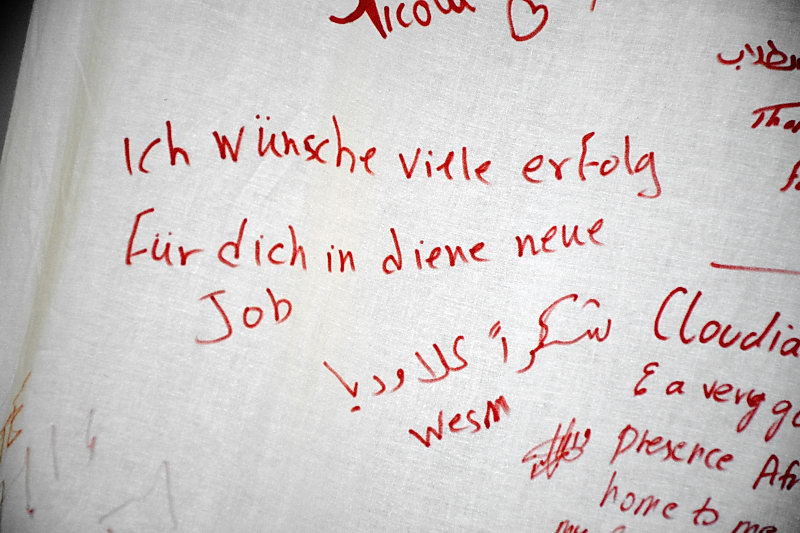 Nicola
Ich wünsche viele erfolg
Für dich in diene neue
Job
شكراً كلاوديا
Wesm
Claudia
& a very
presence
home to me
my